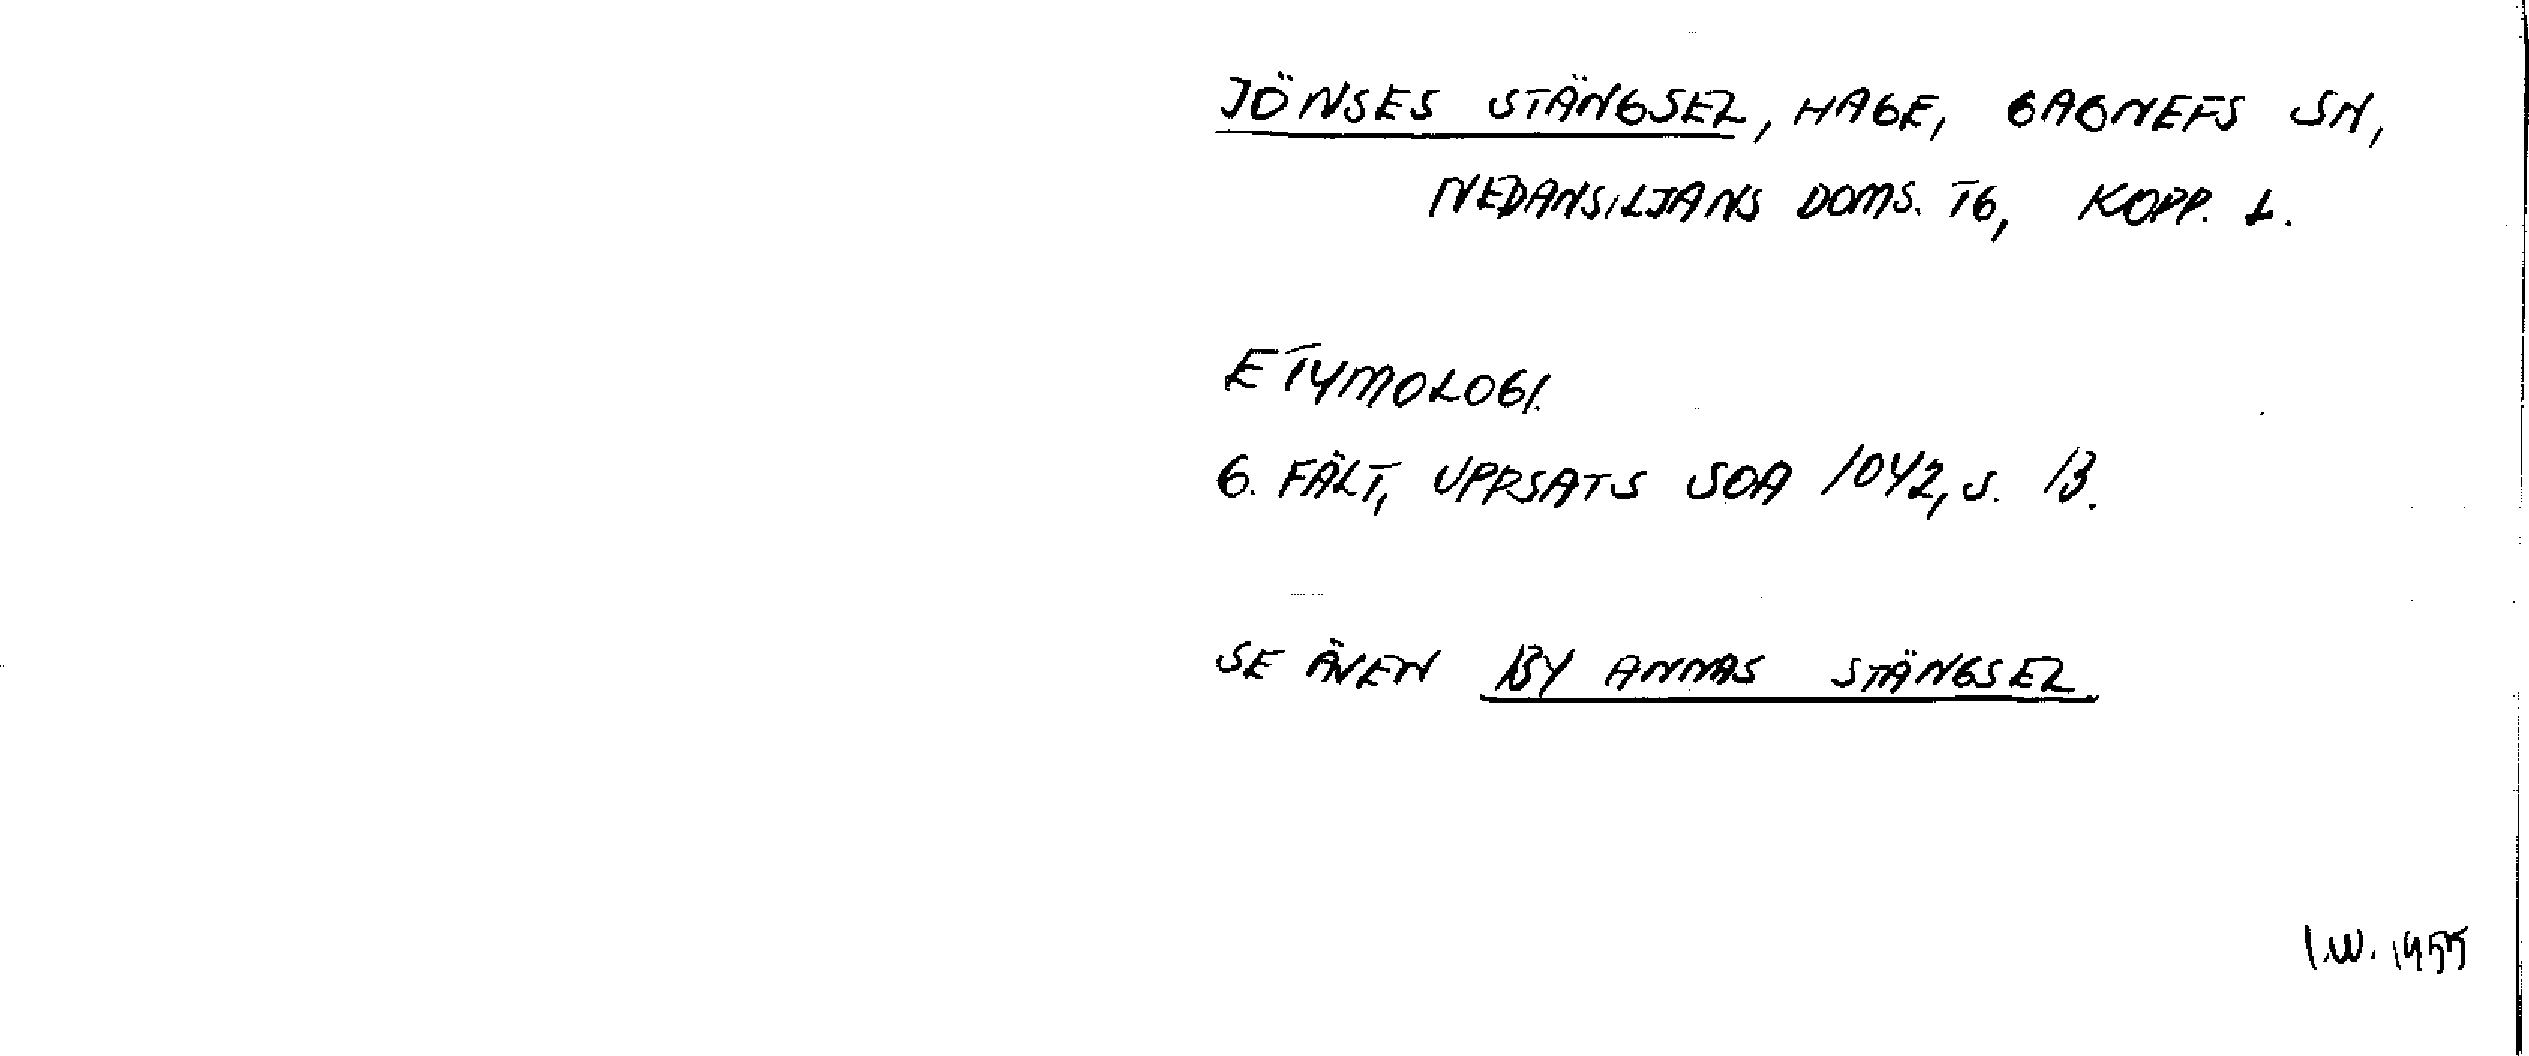 JÖNSES STÄNGSEL, HAGE, GAGNEFS SN,
NEDANSILJANS DOMS. TG, KOPP. L.
ETYMOLOGI.
G. FÄLT, UPPSATS SOA 1042, S. 13.
SE ÄVEN BY ANNAS STÄNGSEL.
I.W. 1955